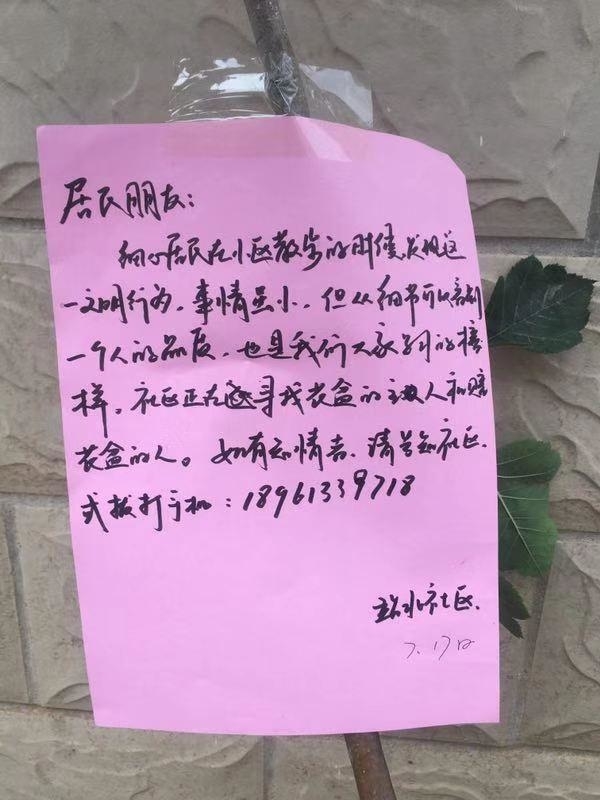 居民朋友:
细心居民在小区散步的时候,发现这
一文明行为,事情虽小,但从细节可以看到
一个人的品质,也是我们大家学习的榜
样。社区正在寻找衣盒的主人和赔
衣盒的人。如有知情者,请告知社区.
或拨打手机:18961339718
社区.
7.17日